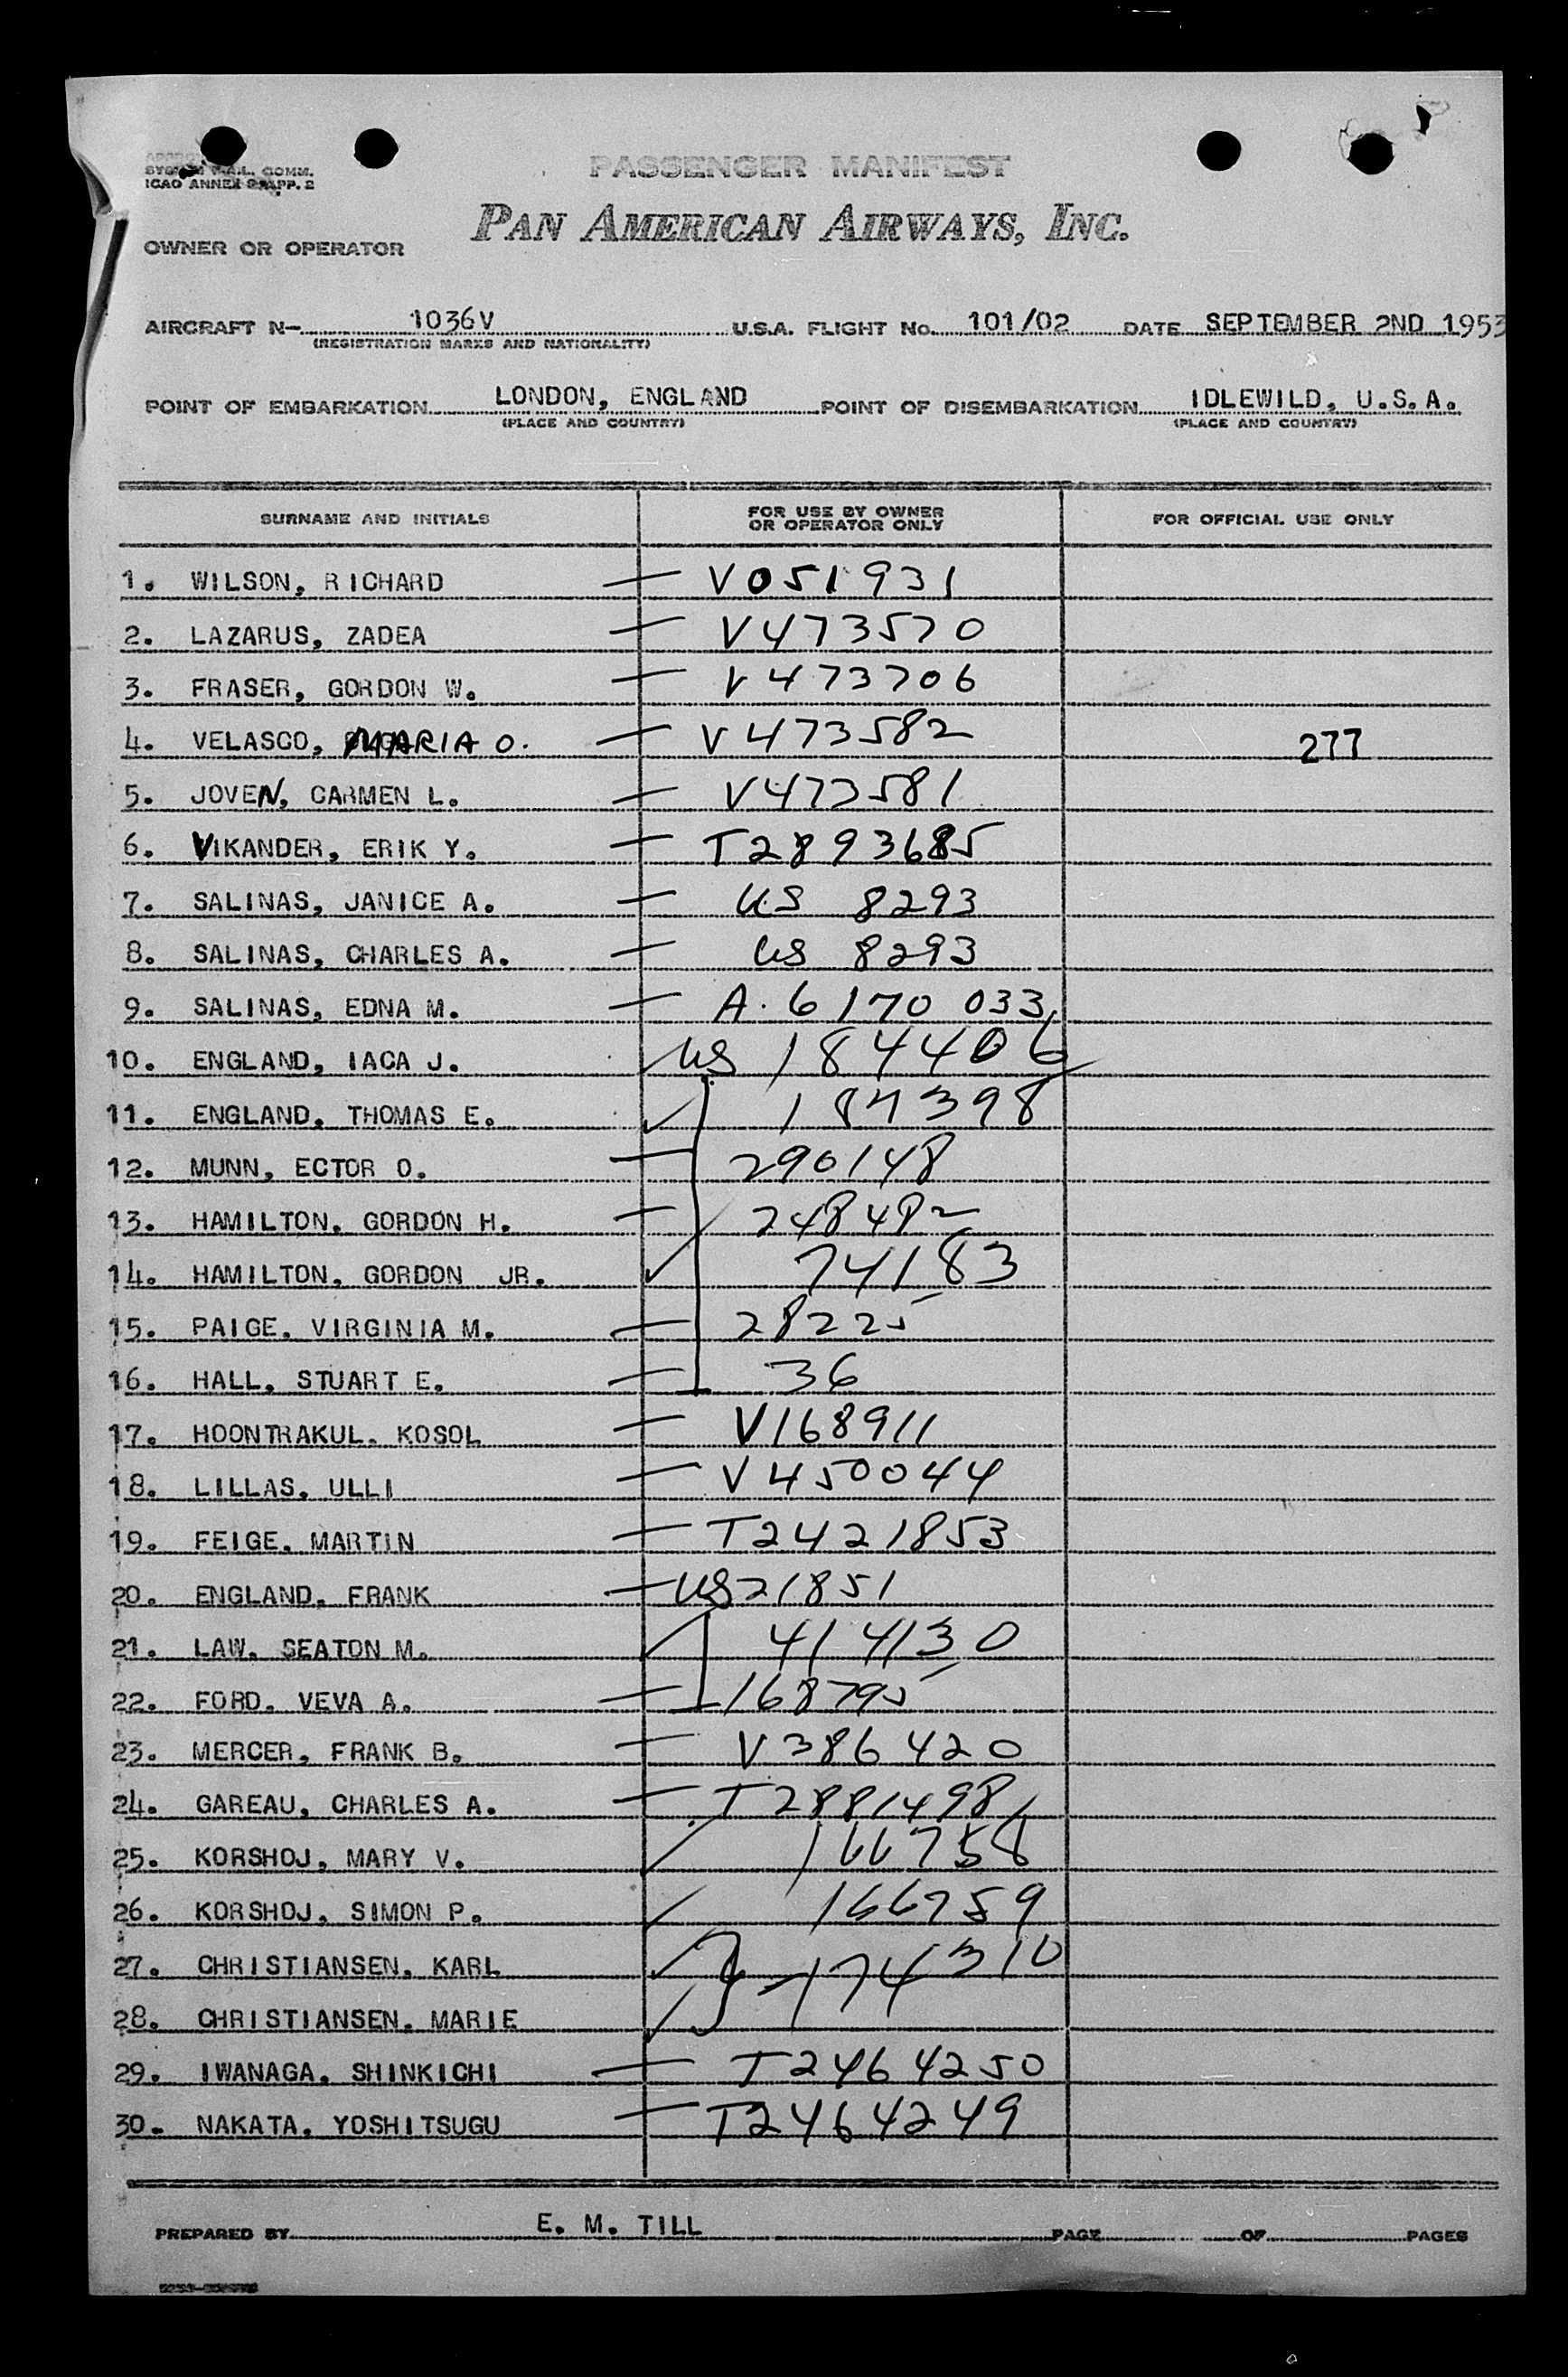 PASSENGER MANIFEST
ICAO ANNEX 9 APP. 2
PAN AMERICAN AIRWAYS, INC.
OWNER OR OPERATOR
AIRCRAFT N- 1036V U.S.A. FLIGHT No. 101/02 DATE SEPTEMBER 2ND 1953
(REGISTRATION MARKS AND NATIONALITY)
POINT OF EMBARKATION LONDON, ENGLAND POINT OF DISEMBARKATION IDLEWILD, U.S.A.
(PLACE AND COUNTRY) (PLACE AND COUNTRY)
SURNAME AND INITIALS FOR USE BY OWNER OR OPERATOR ONLY FOR OFFICIAL USE ONLY
1. WILSON, RICHARD — V051931
2. LAZARUS, ZADEA — V473570
3. FRASER, GORDON W. — V473706
4. VELASCO, MARIA O. — V473582 277
5. JOVEN, CARMEN L. — V473581
6. VIKANDER, ERIK Y. — T2893685
7. SALINAS, JANICE A. — US 8293
8. SALINAS, CHARLES A. — US 8293
9. SALINAS, EDNA M. — A. 6170 033
10. ENGLAND, IACA J. ✓ US 184406
11. ENGLAND, THOMAS E. ✓ 184398
12. MUNN, ECTOR O. — 290148
13. HAMILTON, GORDON H. — 248482
14. HAMILTON, GORDON JR. ✓ 74183
15. PAIGE, VIRGINIA M. — 28225
16. HALL, STUART E. — 36
17. HOONTRAKUL, KOSOL — V168911
18. LILLAS, ULLI — V450044
19. FEIGE, MARTIN — T2421853
20. ENGLAND, FRANK — US21851
21. LAW, SEATON M. ✓ 414130
22. FORD, VEVA A. — 168795
23. MERCER, FRANK B. — V386420
24. GAREAU, CHARLES A. — T2881498
25. KORSHOJ, MARY V. ✓ 166758
26. KORSHOJ, SIMON P. ✓ 166759
27. CHRISTIANSEN, KARL ✓ } - 174310
28. CHRISTIANSEN, MARIE ✓
29. IWANAGA, SHINKICHI — T2464250
30. NAKATA, YOSHITSUGU — T2464249
PREPARED BY E. M. TILL PAGE OF PAGES